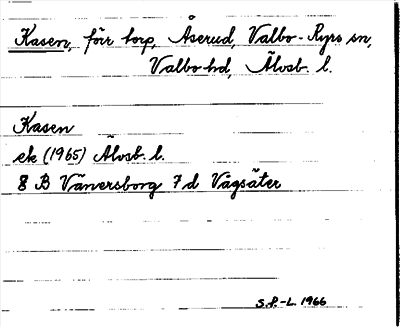 Kasen, förr torp, Åserud, Valbo-Ryrs sn,
Valbo hd, Älvsb. l.
Kasen
ek (1965) Älvsb. l.
8 B Vänersborg 7 d Vågsäter
S.P.-L. 1966